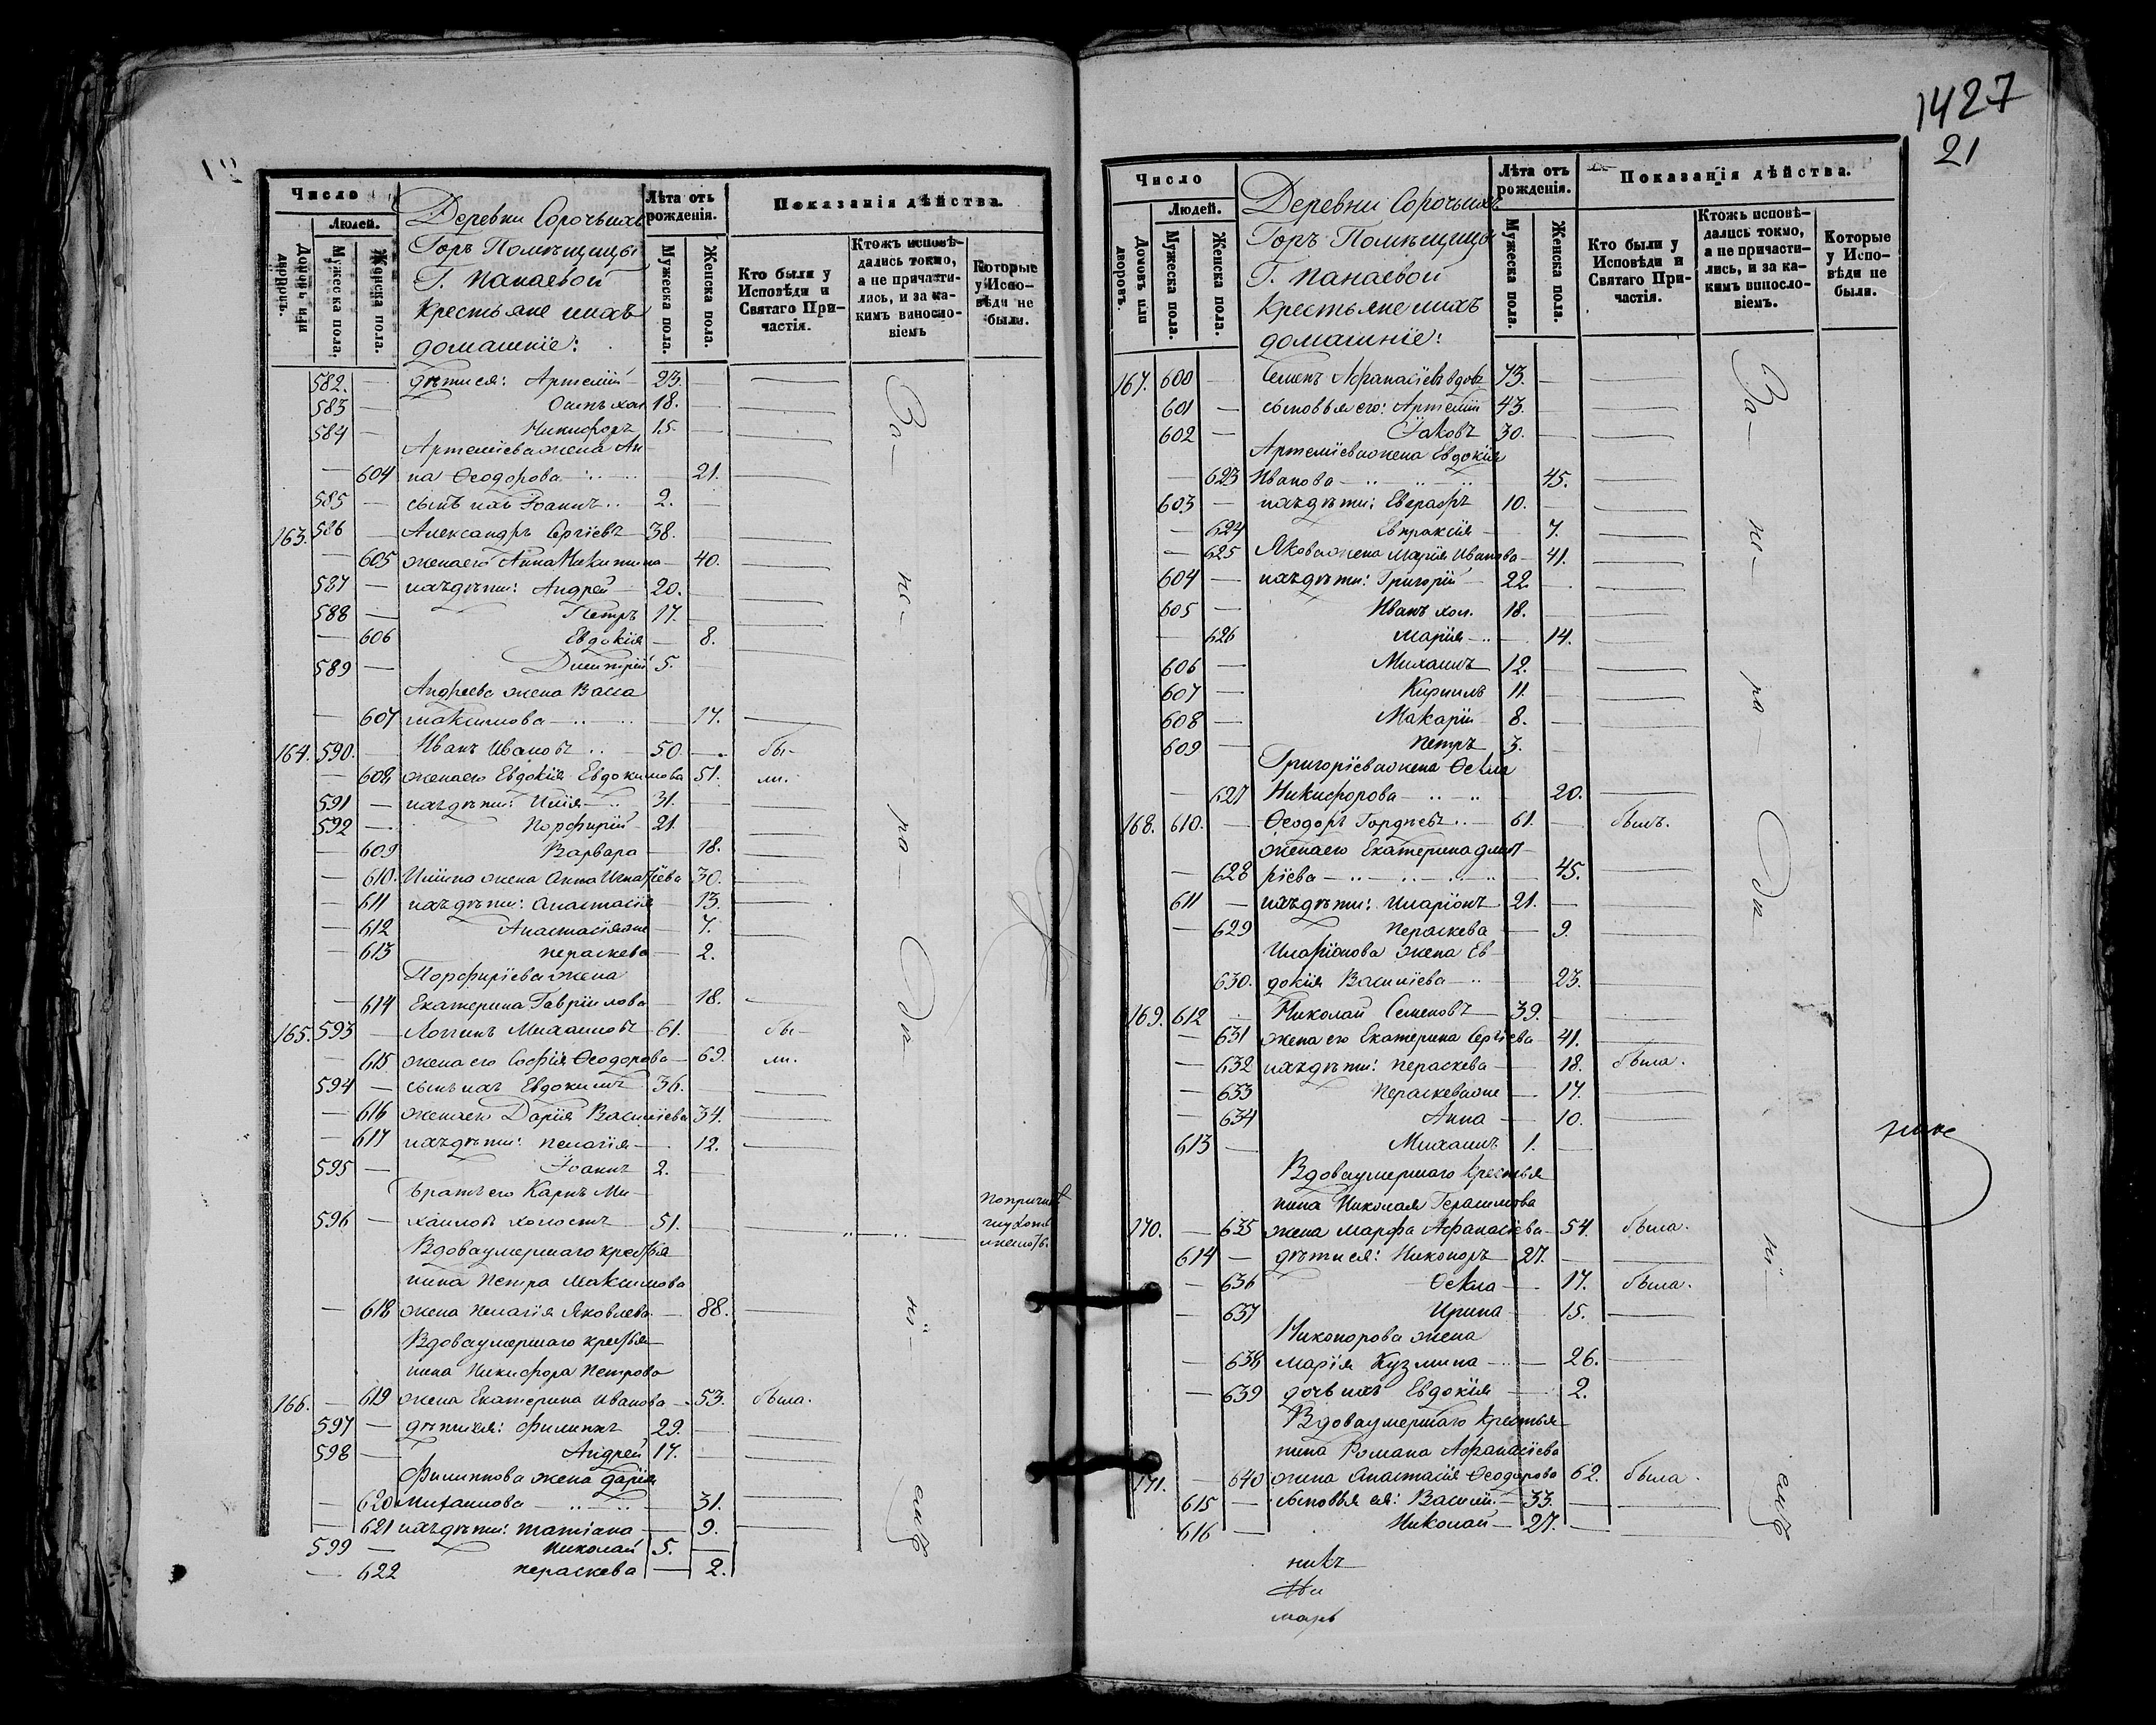 Число
Людей.
Домовъ или дворовъ.
Мужеска пола.
Женска пола.
Деревни Сорочьихъ
Горъ Помѣщицы
Г. Панаевой
Крестьяне ихъ
домашніе:
Лѣта отъ рожденія.
Мужеска пола.
Женска пола.
Показанія дѣйства.
Кто были у Исповѣди и Святаго Причастія.
Ктожъ исповѣдались токмо, а не причастились, и за какимъ винословіемъ
Которые у Исповѣди не были.
582. — дѣти ея: Артемій — 23. —
583 — Осипъ хол 18. —
584 — Никифоръ 15. —
Артеміева жена Ан
— 604 на Ѳеодорова — 21.
585 — сынъ ихъ Іоаннъ 2. —
163. 586 — Александръ Сергіевъ 38.
— 605 жена его Анна Никитина — 40.
587 — ихъ дѣти: Андрей — 20.
588 — Петръ 17.
— 606 Евдокія — 8.
589 — Димитрій 5.
Андреева жена Васса
— 607 Максимова — 17.
164. 590. — Иванъ Ивановъ — 50. — бы-
— 608 жена его Евдокія Евдокимова 51. ли.
591 — ихъ дѣти: Илія — 31.
592 — Порфирій — 21.
— 609 Варвара — 18.
— 610. Иліина жена Анна Игнатіева 30.
— 611 ихъ дѣти: Анастасія — 13.
— 612 Анастасія же — 7.
— 613 Пераскева — 2.
Порфиріева жена
— 614 Екатерина Гавріилова — 18.
165. 593 — Логинъ Михаиловъ — 61. — бы-
— 615 жена его Софія Ѳеодорова — 69. ли.
594 — сынъ ихъ Евдокимъ 36.
— 616 жена его Дарія Василіева 34.
— 617 ихъ дѣти: Пелагія — 12.
595 — Іоаннъ 2.
Братъ его Карпъ Ми-
596 — хаиловъ холостъ 51.
Вдова умершаго крестья
нина Петра Максимова
— 618 жена Пелагія Яковлева — 88.
Вдова умершаго крестья
нина Никифора Петрова
166. — 619 жена Екатерина Иванова — 53. была.
597 — дѣти ея: Филиппъ 29.
598 — Андрей 17.
Филиппова жена Дарія
— 620 Михаилова — 31.
— 621 ихъ дѣти: Татіана — 9.
599 — Николай 5. —
— 622 Пераскева — 2.
За-
не-
ра-
дѣ-
ні-
емъ
1427
21
Число
Людей.
Домовъ или дворовъ.
Мужеска пола.
Женска пола.
Деревни Сорочьихъ
Горъ Помѣщицы
Г. Панаевой
Крестьяне ихъ
домашніе:
Лѣта отъ рожденія.
Мужеска пола.
Женска пола.
Показанія дѣйства.
Кто были у Исповѣди и Святаго Причастія.
Ктожъ исповѣдались токмо, а не причастились, и за какимъ винословіемъ.
Которые у Исповѣди не были.
167. 600 — Семенъ Афанасіевъ вдовъ 73.
601 — сыновья его: Артемій 43.
602 — Іаковъ 30.
Артеміева жена Евдокія
— 623 Иванова — 45.
603 — ихъ дѣти: Евграфъ 10.
— 624 Евпраксія — 7.
— 625 Якова жена Марія Иванова — 41.
604 — ихъ дѣти: Григорій 22.
605 — Иванъ хол. 18.
— 626 Марія — 14.
606 — Михаилъ 12.
607 — Кириллъ 11.
608 — Макарій 8.
609 — Петръ 3.
Григоріева жена Ѳекла
— 627 Никифорова — 20.
168. 610. — Ѳеодоръ Гордѣевъ — 61. — былъ.
жена его Екатерина Дмит
— 628 ріева — 45.
611 — ихъ дѣти: Иларіонъ 21. —
— 629 Пераскева — 9.
Иларіонова жена Ев-
— 630. докія Василіева — 23.
169. 612 Николай Семеновъ — 39.
— 631 жена его Екатерина Сергіева 41.
— 632 ихъ дѣти: Пераскева — 18. была.
— 633 Пераскева же — 17.
— 634 Анна — 10.
613 — Михаилъ 1. —
Вдова умершаго крестья
нина Николая Герасимова
170. — 635 жена Марфа Афанасіева — 54. была.
614 — дѣти ея: Никоноръ — 27.
— 636 Ѳекла — 17. была.
— 637 Ирина — 15.
Никонорова жена
— 638 Марія Кузмина — 26.
— 639 дочь ихъ Евдокія — 2.
Вдова умершаго крестья
нина Романа Афанасіева
171. — 640 жена Анастасія Ѳеодорова 62. была.
615 — сыновья ея: Василій — 33.
616 — Николай — 27.
За-
не-
ра-
дѣ-
ні-
емъ
никъ
марь